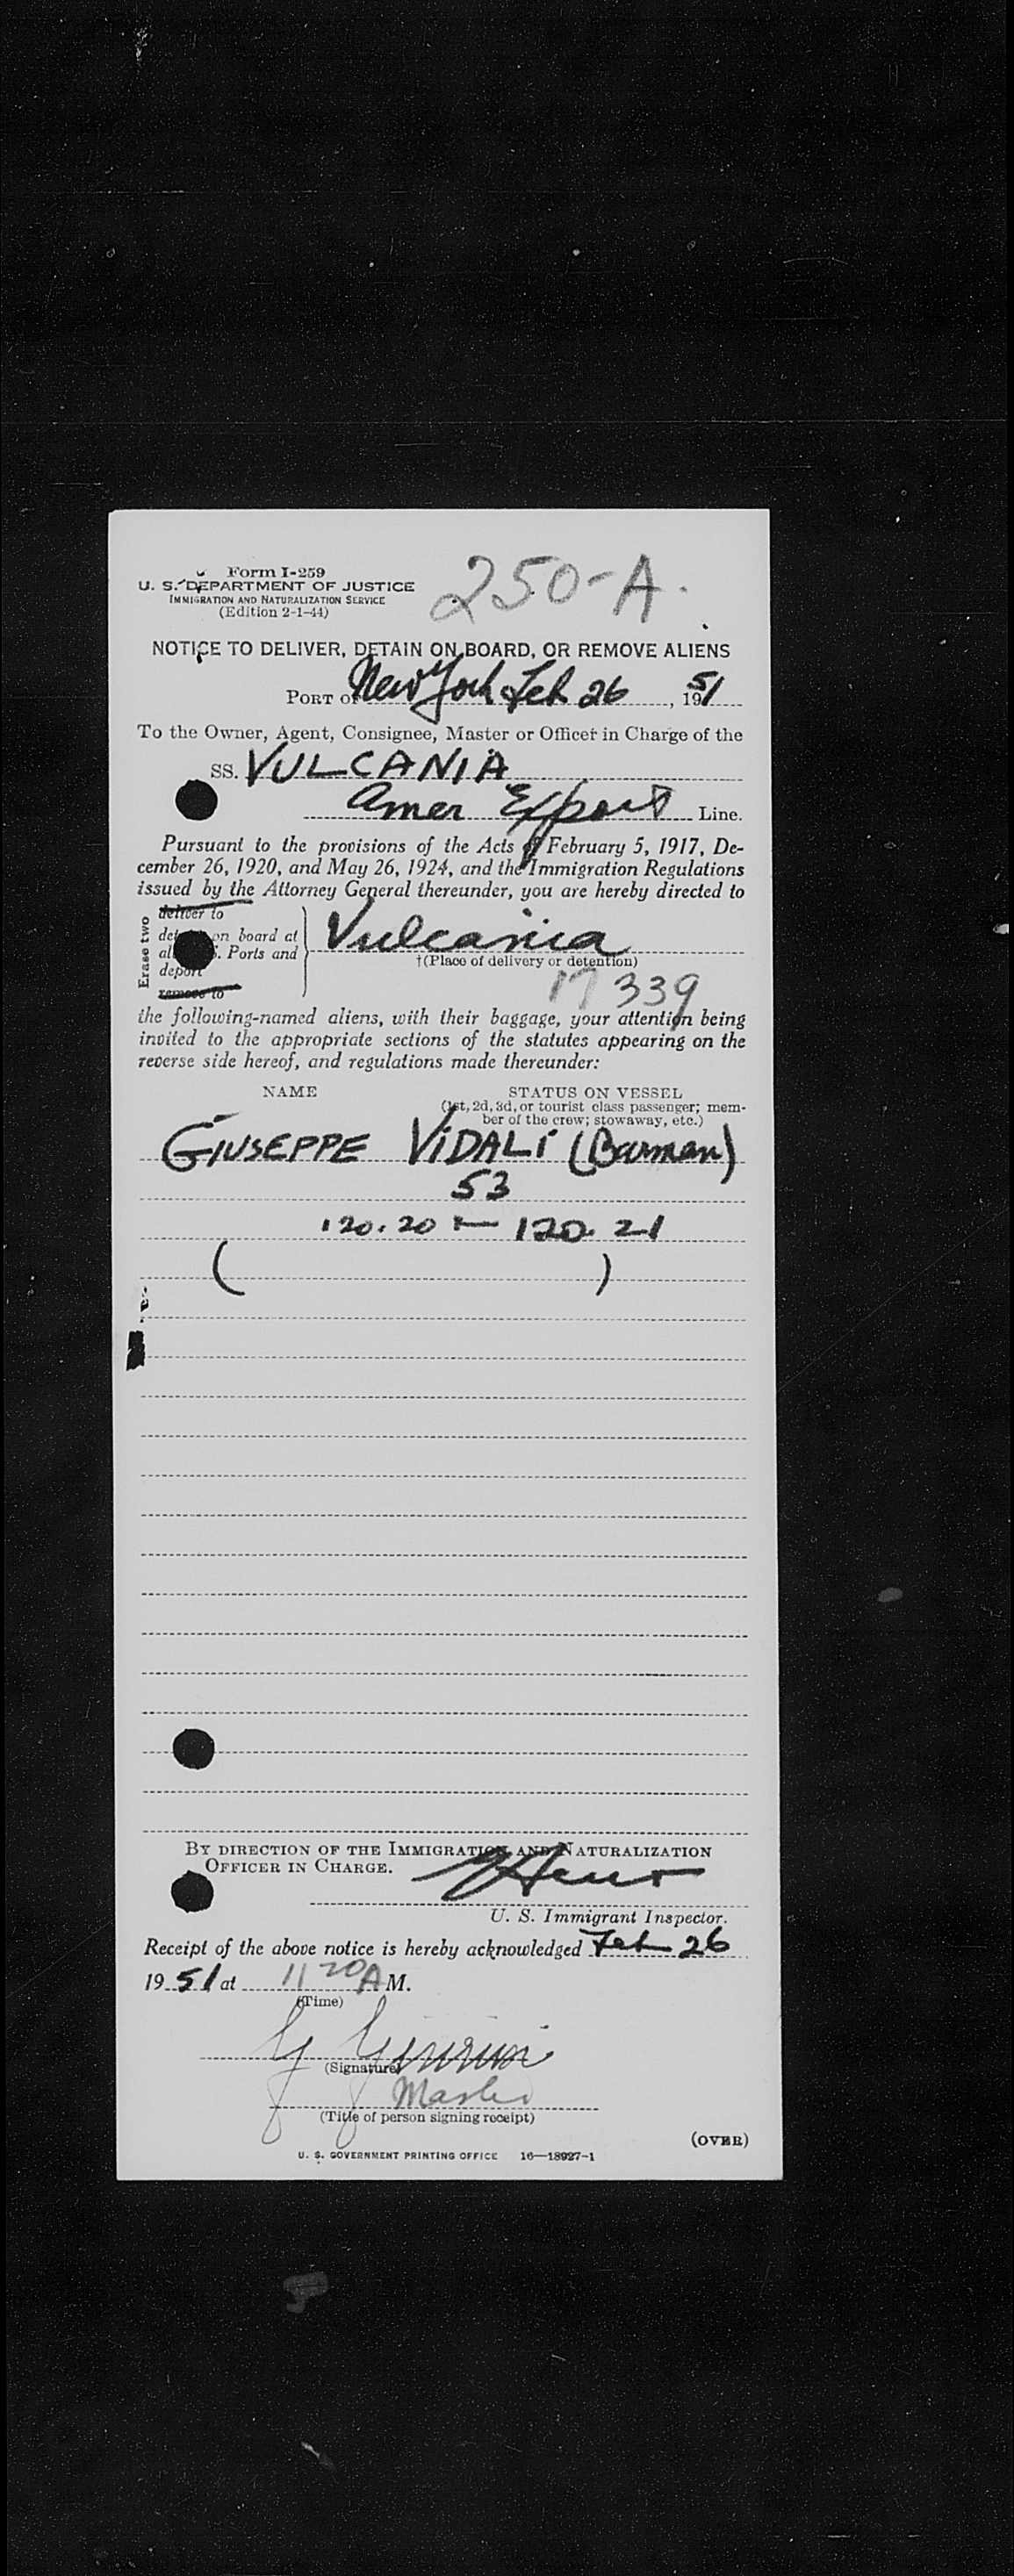 Form I-259
250-A.
U. S. DEPARTMENT OF JUSTICE
IMMIGRATION AND NATURALIZATION SERVICE
(Edition 2-1-44)
NOTICE TO DELIVER, DETAIN ON BOARD, OR REMOVE ALIENS
PORT OF New York Feb 26, 1951
To the Owner, Agent, Consignee, Master or Officer in Charge of the
SS. VULCANIA
Amer Export Line.
Pursuant to the provisions of the Acts of February 5, 1917, De-
cember 26, 1920, and May 26, 1924, and the Immigration Regulations
issued by the Attorney General thereunder, you are hereby directed to
Erase two
deliver to
on board at
Ports and
deport
remove to
Vulcania
†(Place of delivery or detention)
17339
the following-named aliens, with their baggage, your attention being
invited to the appropriate sections of the statutes appearing on the
reverse side hereof, and regulations made thereunder:
NAME STATUS ON VESSEL
(1st, 2d, 3d, or tourist class passenger; mem-
ber of the crew; stowaway, etc.)
GIUSEPPE VIDALI (Barman)
53
120.20 — 120.21
( )
BY DIRECTION OF THE IMMIGRATION AND NATURALIZATION
OFFICER IN CHARGE.
U. S. Immigrant Inspector.
Receipt of the above notice is hereby acknowledged Feb 26
1951 at 11 20 A M.
(Time)
(Signature)
Master
(Title of person signing receipt)
(OVER)
U. S. GOVERNMENT PRINTING OFFICE 16—18927-1